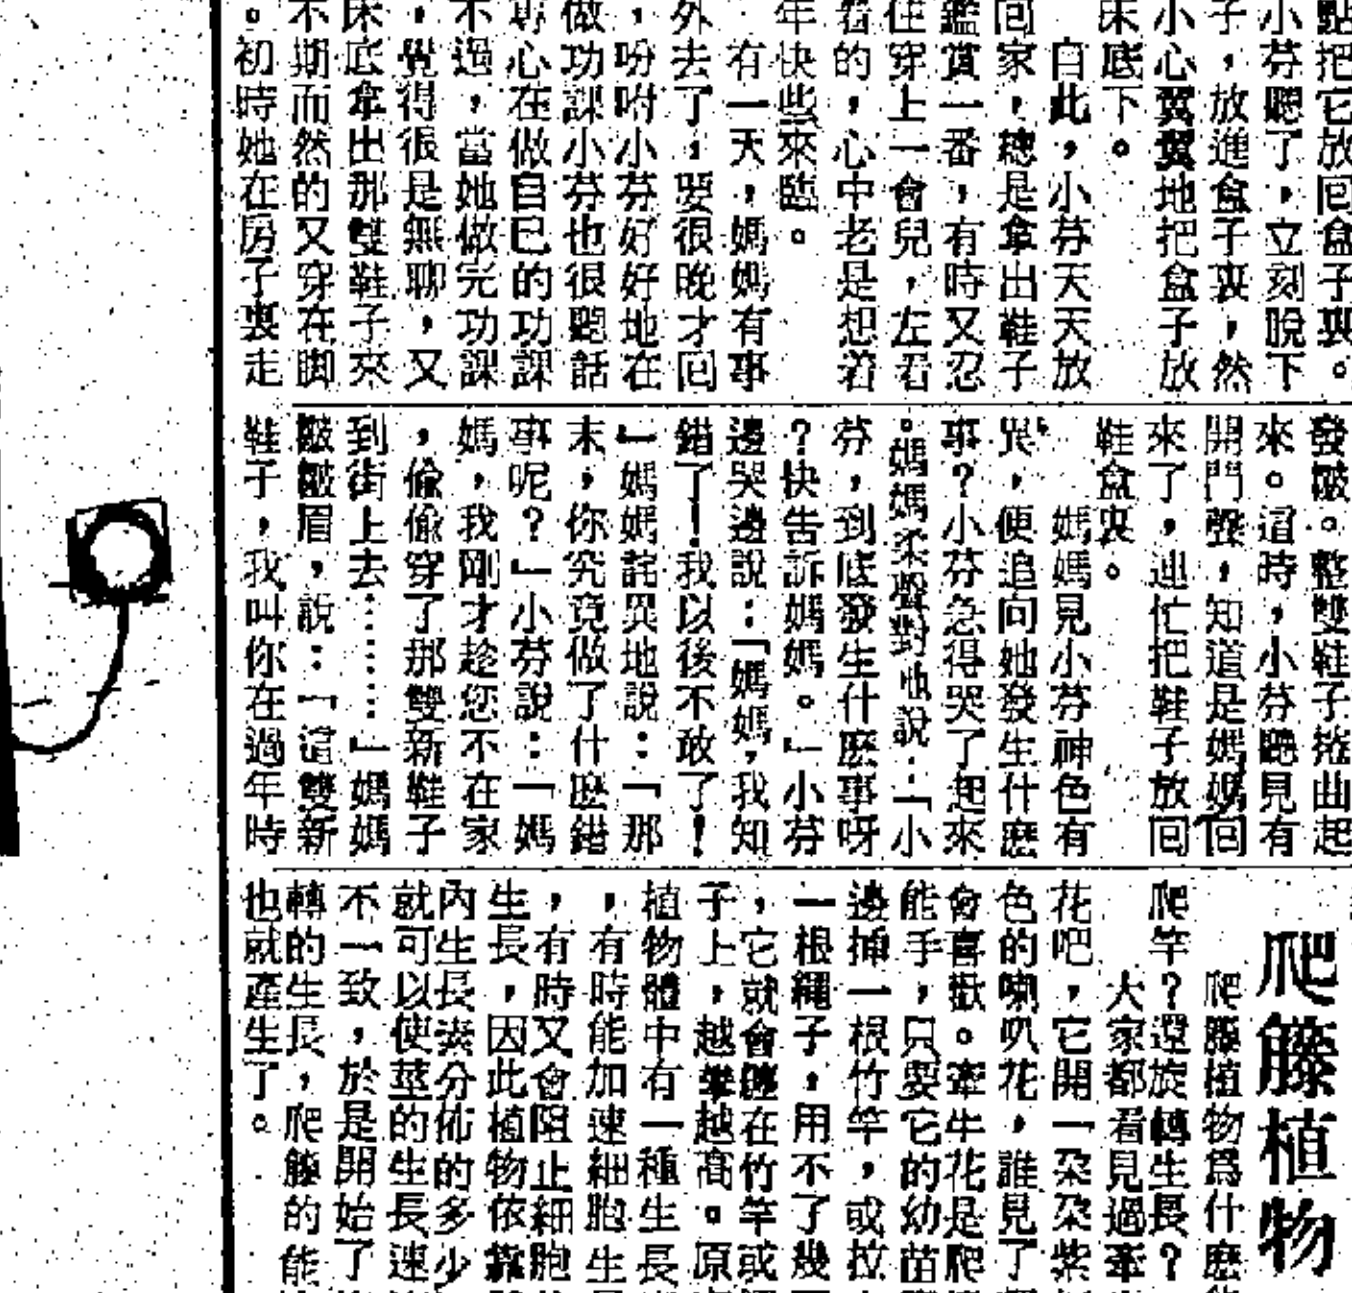 點把它放回盒子裏。
小芬聽了，立刻脫下
子，放進盒子裏，然
小心翼翼地把盒子放
床底下。
自此，小芬天天放
回家，總是拿出鞋子
鑑賞一番，有時又忍
住穿上一會兒，左看
看的，心中老是想着
年快些來臨。
有一天，媽媽有事
外去了，要很晚才回
，吩咐小芬好好地在
做功課小芬也很聽話
專心在做自己的功課
不過，當她做完功課
，覺得很是無聊，又
床底拿出那雙鞋子來
不期而然的又穿在脚
。初時她在房子裏走
發皺。整雙鞋子捲曲起
來。這時，小芬聽見有
開門聲，知道是媽媽回
來了，連忙把鞋子放回
鞋盒裏。
媽媽見小芬神色有
異，便追问她發生什麽
事？小芬急得哭了起來
。媽媽柔聲對她說：「小
芬，到底發生什麽事呀
？快告訴媽媽。」小芬
邊哭邊說：「媽媽，我知
錯了！我以後不敢了！
」媽媽詫異地說：「那
末，你究竟做了什麽錯
事呢？」小芬說：「媽
媽，我剛才趁您不在家
，偷偷穿了那雙新鞋子
到街上去………」媽媽
皺皺眉，說：「這雙新
鞋子，我叫你在過年時
爬籐植物
爬籐植物爲什麽
爬竿？還旋轉生長？
大家都看見過牽
花吧，它開一朶朶紫
色的喇叭花，誰見了
會喜歡。牽牛花是爬
能手，只要它的幼苗
邊揷一根竹竿，或拉
一根繩子，用不了幾
，它就會纏在竹竿或
子上，越攀越高。原
植物體中有一種生長
，有時能加速細胞生
，有時又會阻止細胞
生長，因此植物依靠
內生長素分佈的多少
就可以使莖的生長速
不一致，於是開始了
轉的生長，爬籐的能
也就產生了。